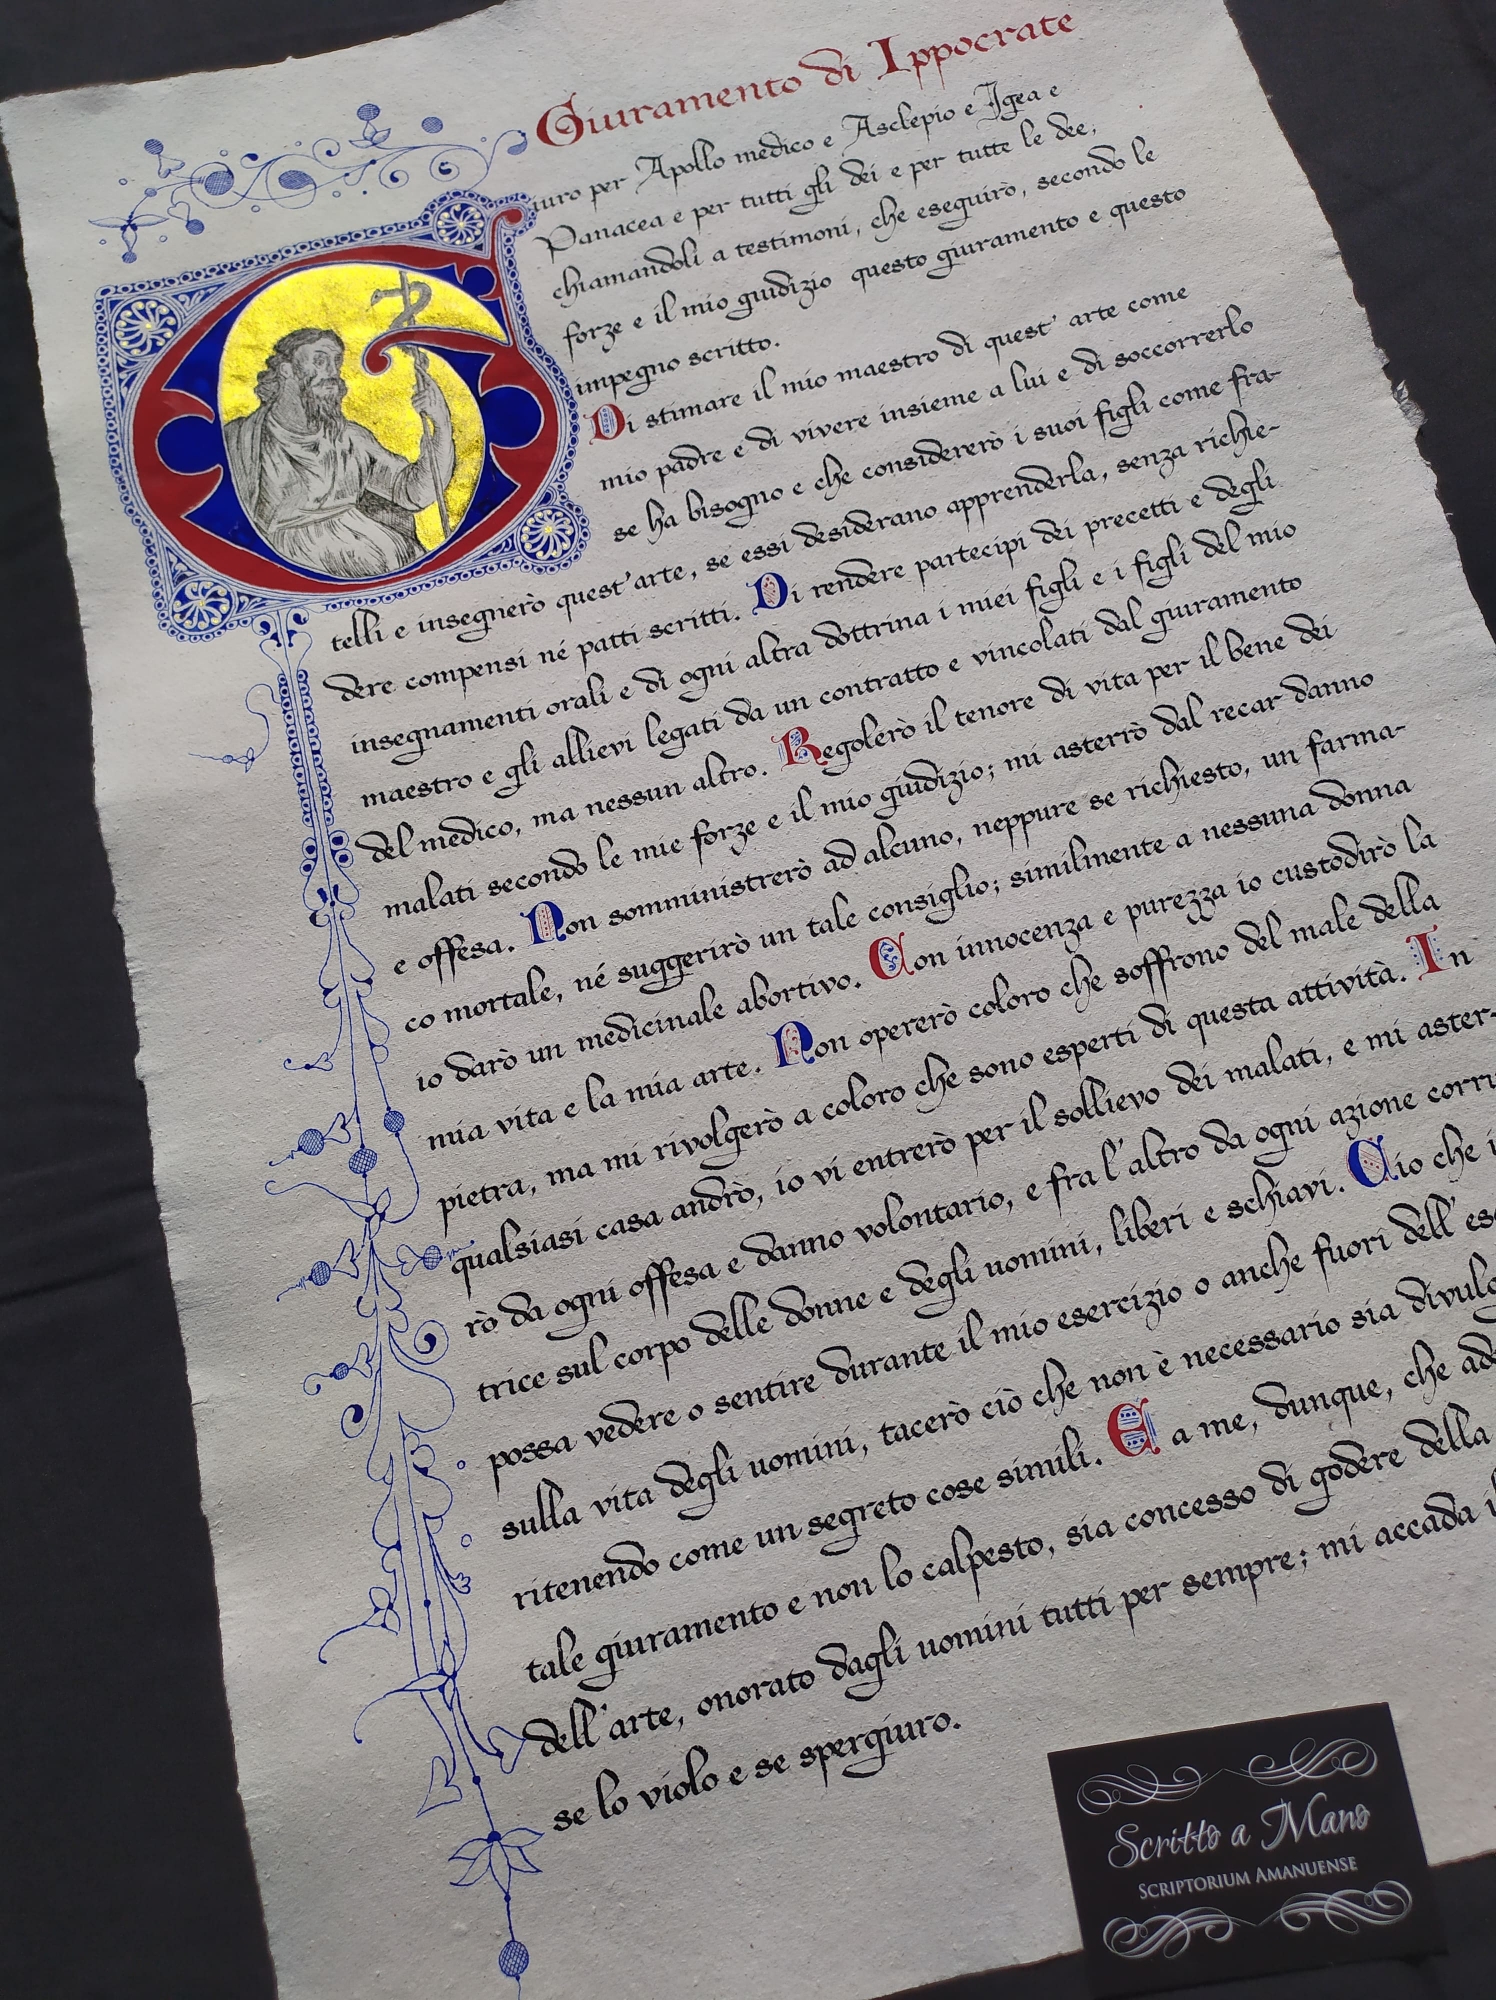 Giuramento di Ippocrate
Giuro per Apollo medico e Asclepio e Igea e
Panacea e per tutti gli dei e per tutte le dee,
chiamandoli a testimoni, che eseguirò, secondo le
forze e il mio giudizio questo giuramento e questo
impegno scritto.
Di stimare il mio maestro di quest' arte come
mio padre e di vivere insieme a lui e di soccorrerlo
se ha bisogno e che considererò i suoi figli come fra-
telli e insegnerò quest'arte, se essi desiderano apprenderla, senza richie-
dere compensi né patti scritti. Di rendere partecipi dei precetti e degli
insegnamenti orali e di ogni altra dottrina i miei figli e i figli del mio
maestro e gli allievi legati da un contratto e vincolati dal giuramento
del medico, ma nessun altro. Regolerò il tenore di vita per il bene dei
malati secondo le mie forze e il mio giudizio; mi asterrò dal recar danno
e offesa. Non somministrerò ad alcuno, neppure se richiesto, un farma-
co mortale, né suggerirò un tale consiglio; similmente a nessuna donna
io darò un medicinale abortivo. Con innocenza e purezza io custodirò la
mia vita e la mia arte. Non opererò coloro che soffrono del male della
pietra, ma mi rivolgerò a coloro che sono esperti di questa attività. In
qualsiasi casa andrò, io vi entrerò per il sollievo dei malati, e mi aster-
rò da ogni offesa e danno volontario, e fra l'altro da ogni azione corru
trice sul corpo delle donne e degli uomini, liberi e schiavi. Ciò che
possa vedere o sentire durante il mio esercizio o anche fuori dell'
sulla vita degli uomini, tacerò ciò che non è necessario sia
ritenendo come un segreto cose simili. E a me, dunque, che
tale giuramento e non lo calpesto, sia concesso di godere della
dell'arte, onorato dagli uomini tutti per sempre; mi accada
se lo violo e se spergiuro.
Scritto a Mano
Scriptorium Amanuense